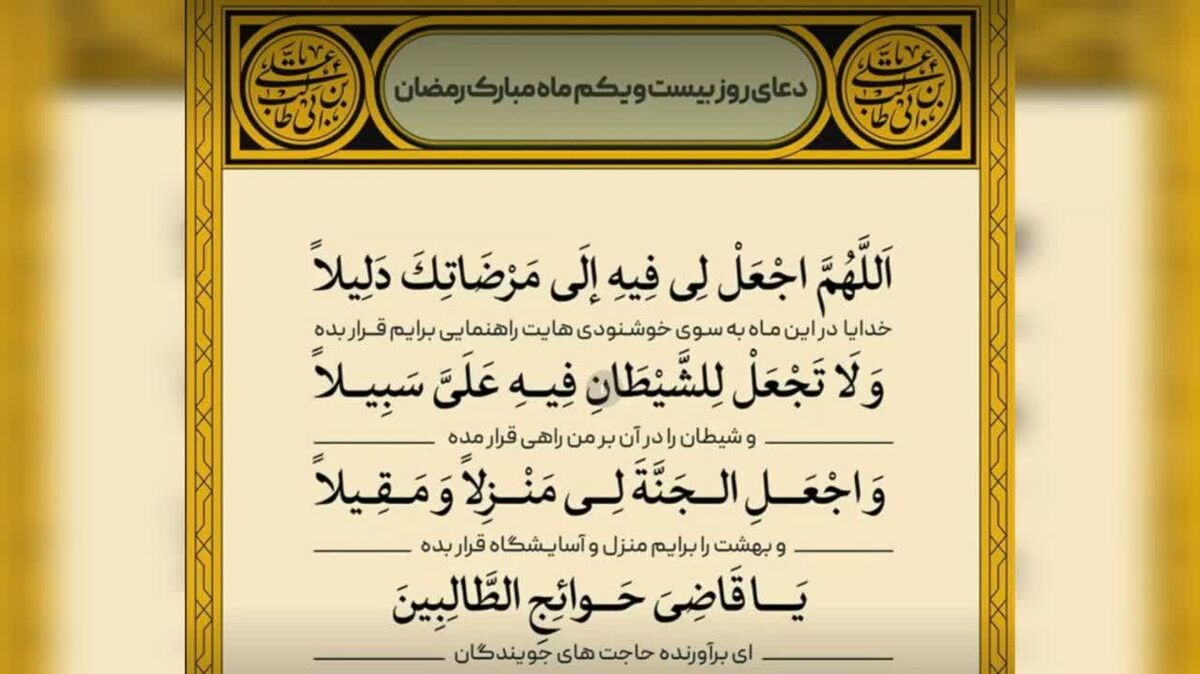 دعای روز بیست و یکم ماه مبارک رمضان
علی بن ابی طالب
علی بن ابی طالب
اَللَّهُمَّ اجْعَلْ لِی فِیهِ إِلَی مَرْضَاتِكَ دَلِیلاً
خدایا در این ماه به سوی خوشنودی هایت راهنمایی برایم قرار بده
وَلَا تَجْعَلْ لِلشَّيْطَانِ فِيهِ عَلَيَّ سَبِيلاً
و شیطان را در آن بر من راهی قرار مده
وَاجْعَلِ الجَنَّةَ لِی مَنْزِلاً وَمَقِیلاً
و بهشت را برایم منزل و آسایشگاه قرار بده
يَا قَاضِيَ حَوائِجِ الطَّالِبِينَ
ای برآورنده حاجت های جویندگان